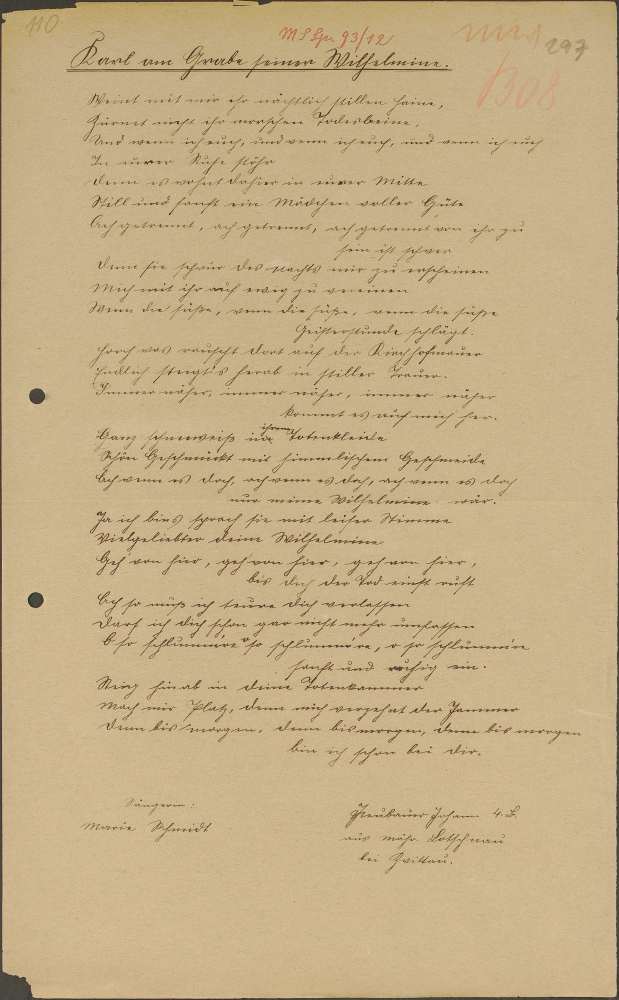 110
MS Sp. 93/12
297
B08
Karl am Grabe seiner Wilhelmine.
Weint mit mir ihr nächtlich stillen Haine,
Zürnet nicht ihr morschen Todesbeine,
Und wenn ich euch, und wenn ich euch, und wenn ich euch
In eurer Ruhe stöhr
Denn es wohnt dahier in eurer Mitte
Still und sanft ein Mädchen voller Güte
Ach getrennt, ach getrennt, ach getrennt von ihr zu
sein ist schwer
Denn sie schwur des Nachts mir zu erscheinen
Mich mit ihr auf ewig zu vereinen
Wenn die süße, wenn die süße, wenn die süße
Geisterstunde schlägt.
Horch was rauscht dort auf der Kirchhofmauer
Endlich steigt's herab in stiller Trauer.
Immer näher, immer näher, immer näher
kommt es auf mich her.
Ganz schneeweiß in ihrem Totenkleide
Schön Geschmückt mit himmlischem Geschmeide
Ach wenn es doch, ach wenn es doch, ach wenn es doch
nur meine Wilhelmine wär.
Ja ich bins sprach sie mit leiser Stimme
Vielgeliebter deine Wilhelmine
Geh von hier, geh von hier, geh von hier,
bis dich der Tod einst ruft
Ach so muß ich teure dich verlassen
Darf ich dich schon gar nicht mehr umfassen
O so schlummere o so schlummere, o so schlummere
sanft und ruhig ein.
Steig hinab in deine Totenkammer
Mach mir Platz, denn mich verzehrt der Jammer
Denn bis morgen, denn bis morgen, denn bis morgen
bin ich schon bei dir.
Sängerin:
Marie Schmidt
Neubauer Johann 4.B.
aus mähr. Lotschnau
bei Zwittau.